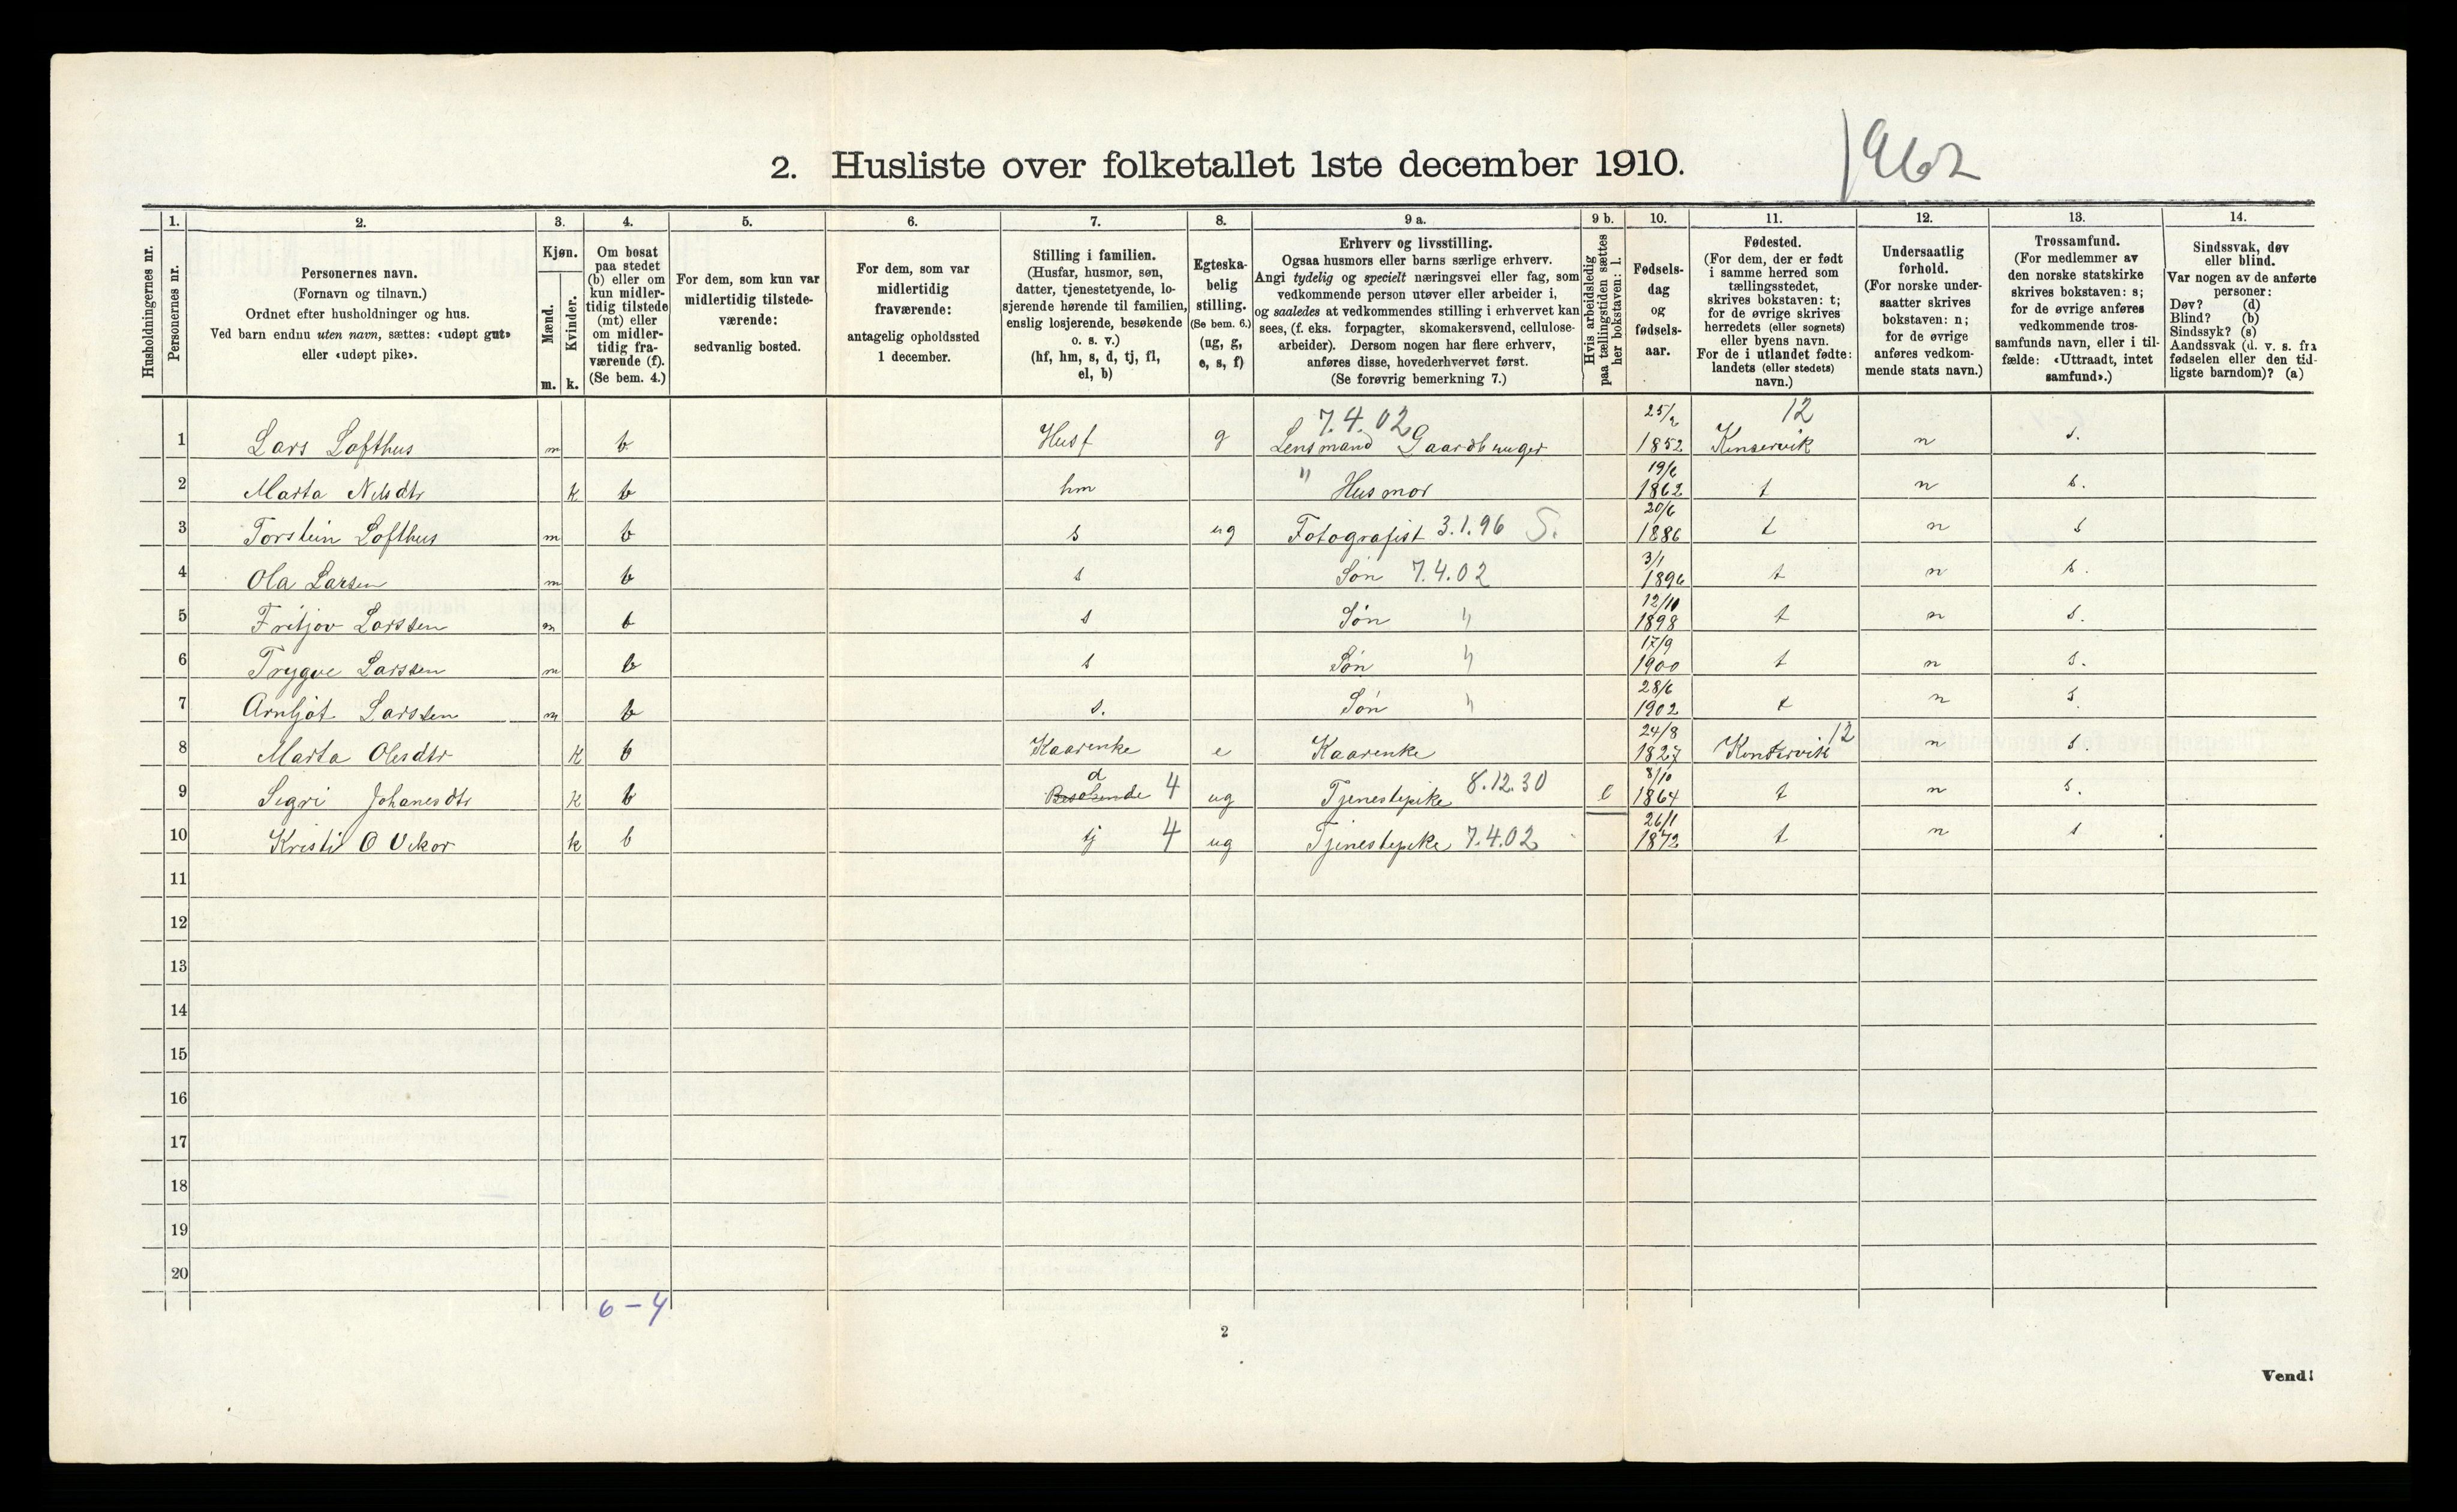 1962
2. Husliste over folketallet 1ste december 1910.
Husholdningernes nr.
1.
Personernes nr.
2.
Personernes navn.
(Fornavn og tilnavn.)
Ordnet efter husholdninger og hus.
Ved barn endnu uten navn, sættes: «udøpt gut»
eller «udøpt pike».
3.
Kjøn.
Mænd.
Kvinder.
m. k.
4.
Om bosat
paa stedet
(b) eller om
kun midler-
tidig tilstede
(mt) eller
om midler-
tidig fra-
værende (f).
(Se bem. 4.)
5.
For dem, som kun var
midlertidig tilstede-
værende:
sedvanlig bosted.
6.
For dem, som var
midlertidig
fraværende:
antagelig opholdssted
1 december.
7.
Stilling i familien.
(Husfar, husmor, søn,
datter, tjenestetyende, lo-
sjerende hørende til familien,
enslig losjerende, besøkende
o. s. v.)
(hf, hm, s, d, tj, fl,
el, b)
8.
Egteska-
belig
stilling.
(Se bem. 6.)
(ug, g,
e, s, f)
9 a.
Erhverv og livsstilling.
Ogsaa husmors eller barns særlige erhverv.
Angi tydelig og specielt næringsvei eller fag, som
vedkommende person utøver eller arbeider i,
og saaledes at vedkommendes stilling i erhvervet kan
sees, (f. eks. forpagter, skomakersvend, cellulose-
arbeider). Dersom nogen har flere erhverv,
anføres disse, hovederhvervet først.
(Se forøvrig bemerkning 7.)
9 b.
Hvis arbeidsledig
paa tællingstiden sættes
her bokstaven: l.
10.
Fødsels-
dag
og
fødsels-
aar.
11.
Fødested.
(For dem, der er født
i samme herred som
tællingsstedet,
skrives bokstaven: t;
for de øvrige skrives
herredets (eller sognets)
eller byens navn.
For de i utlandet fødte:
landets (eller stedets)
navn.)
12.
Undersaatlig
forhold.
(For norske under-
saatter skrives
bokstaven: n;
for de øvrige
anføres vedkom-
mende stats navn.)
13.
Trossamfund.
(For medlemmer av
den norske statskirke
skrives bokstaven: s;
for de øvrige anføres
vedkommende tros-
samfunds navn, eller i til-
fælde: «Uttraadt, intet
samfund».)
14.
Sindssvak, døv
eller blind.
Var nogen av de anførte
personer:
Døv? (d)
Blind? (b)
Sindssyk? (s)
Aandssvak (d. v. s. fra
fødselen eller den tid-
ligste barndom)? (a)
7.4.02 25/2 12
1 Lars Lofthus m b Husf g Lensmand Gaardbruger 1852 Kinservik n s.
19/6
2 Marta Nilsdtr k b hm " Husmor 1862 t n s.
20/6
3 Torstein Lofthus m b s ug Fotografist 3.1.96 S. 1886 t n s
3/1
4 Ola Larsen m b s Søn 7.4.02 1896 t n s.
12/10
5 Fritjov Larssen m b s Søn " 1898 t n s.
17/9
6 Trygve Larssen m b s Søn " 1900 t n s.
28/6
7 Arnljot Larssen m b s. Søn " 1902 t n s.
24/8 12
8 Marta Olesdtr k b Kaarenke e Kaarenke 1827 Kinservik n s.
d 8/10
9 Segri Johanesdtr k b Besøkende 4 ug Tjenestepike 8.12.30 l 1864 t n s.
26/1
10 Kristi O Vikor k b tj 4 ug Tjenestepike 7.4.02 1872 t n s
11
12
13
14
15
16
17
18
19
20
6-4
2
Vend!